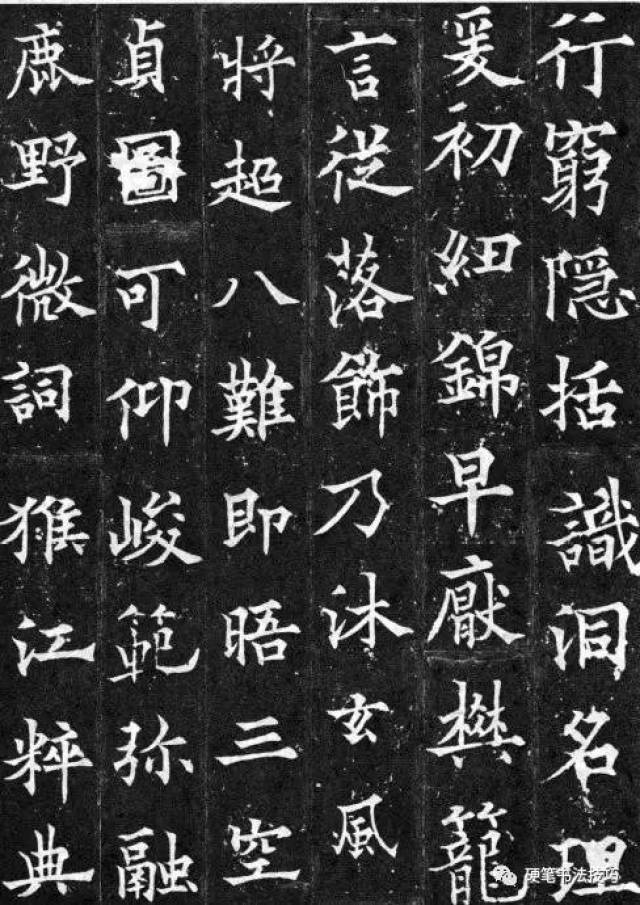 行窮隱括識洞名理
爰初細錦早厭樊籠
言從落飾乃沐玄風
將超八難即晤三空
貞圖可仰峻範弥融
鹿野微詞猴江粹典
硬笔书法技巧